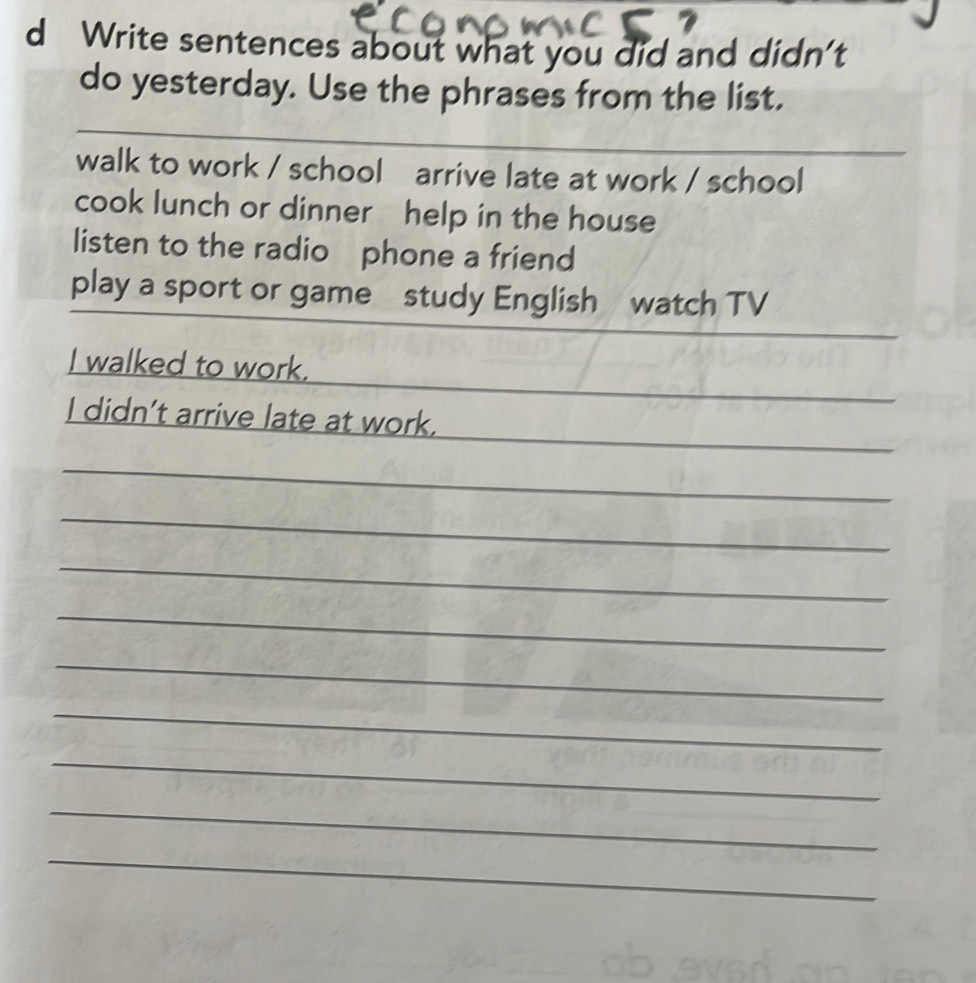 economics?
d Write sentences about what you did and didn't
do yesterday. Use the phrases from the list.
walk to work / school arrive late at work / school
cook lunch or dinner help in the house
listen to the radio phone a friend
play a sport or game study English watch TV
I walked to work.
I didn't arrive late at work.